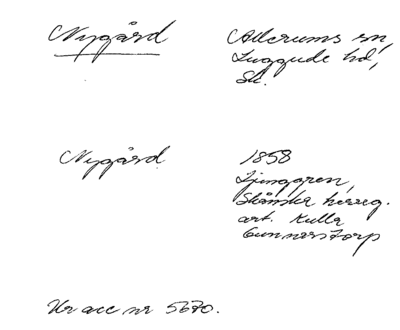 Nygård
Allerums sn,
Luggude hd,
Sk.
Nygård
1858
Ljunggren,
Skånska herreg.
art. Kulla
Gunnarstorp
Ur acc nr 5670.